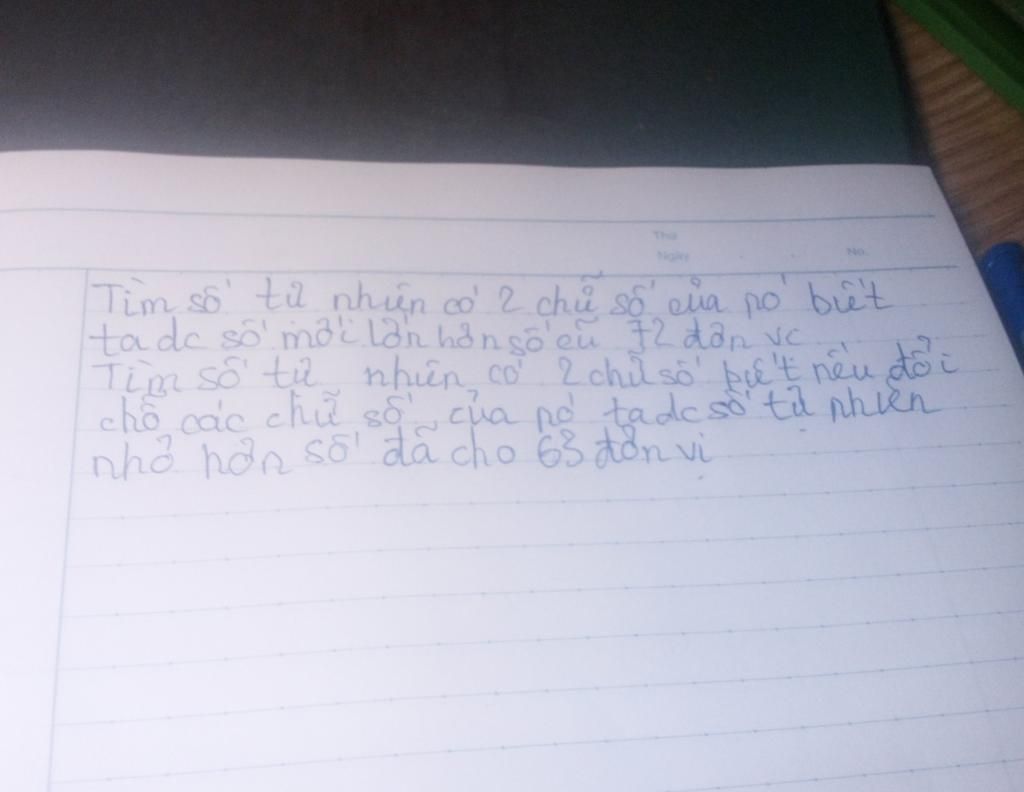 Thứ
Ngày . . No.
Tìm số tữ nhiên có 2 chữ số của nó biết
ta dc số mới lớn hơn số cũ 72 đơn vc
Tìm số tữ nhiên có 2 chữ số biết nếu đổi
chỗ các chữ số của nó ta dc số tự nhiên
nhỏ hơn số đã cho 63 đơn vị